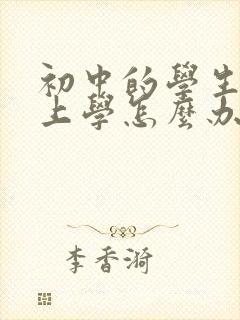 初中的學生
上學怎麼办
李香漪